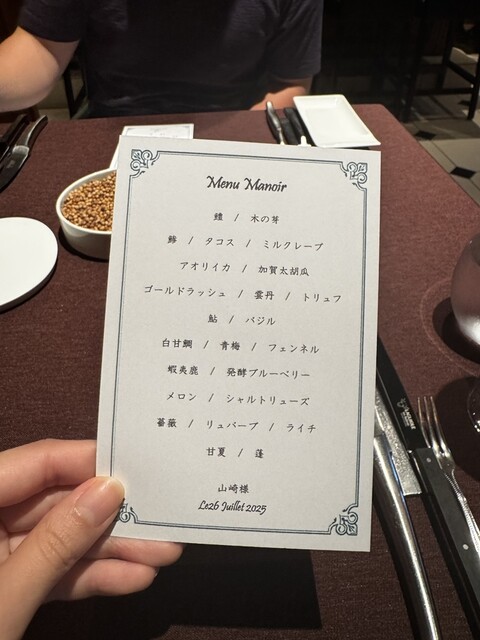 Menu Manoir
鱧 / 木の芽
鯵 / タコス / ミルクレープ
アオリイカ / 加賀太胡瓜
ゴールドラッシュ / 雲丹 / トリュフ
鮎 / バジル
白甘鯛 / 青梅 / フェンネル
蝦夷鹿 / 発酵ブルーベリー
メロン / シャルトリューズ
薔薇 / リュバーブ / ライチ
甘夏 / 蓬
山崎様
Le26 Juillet 2025